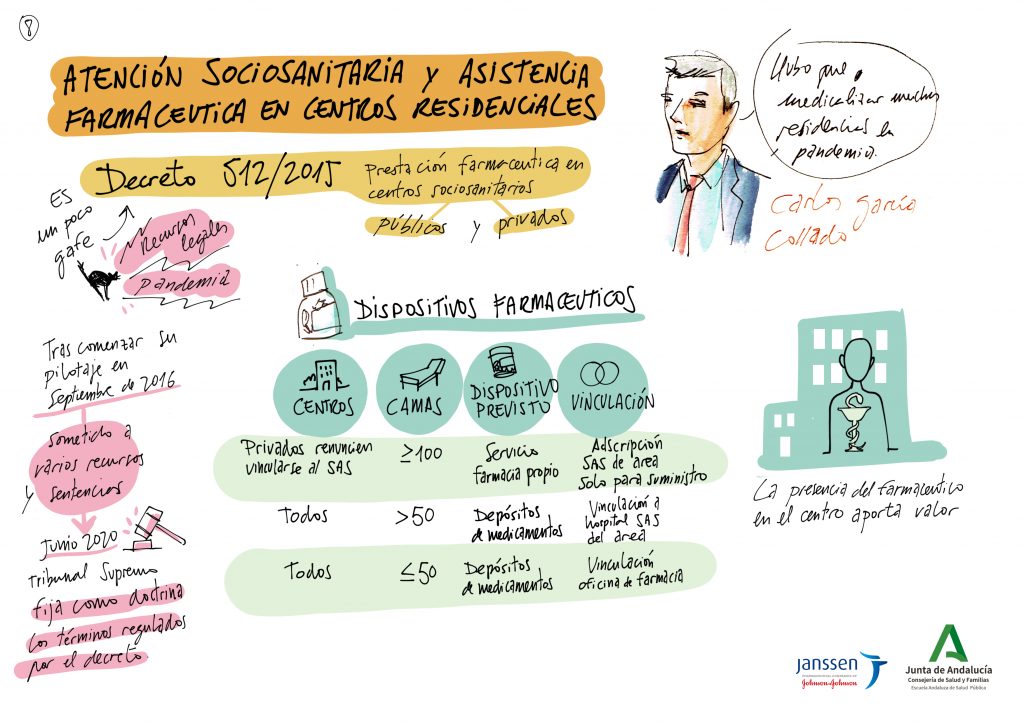 8
ATENCIÓN SOCIOSANITARIA y ASISTENCIA
FARMACEUTICA EN CENTROS RESIDENCIALES
Decreto 512/2015
Prestación farmaceutica en
centros sociosanitarios
públicos y privados
Es
un poco
gafe
Recursos
legales
pandemia
Hubo que
medicalizar muchas
residencias en
pandemia.
Carlos garcía
Collado
Tras comenzar su
pilotaje en
Septiembre de 2016
sometido a
varios recursos
y sentencias
Junio 2020
Tribunal Supremo
fija como doctrina
los términos regulados
por el decreto.
DISPOSITIVOS FARMACEUTICOS
CENTROS
CAMAS
DISPOSITIVO
PREVISTO
VINCULACIÓN
Privados renuncien
vincularse al SAS
≥100
Servicio
farmacia propio
Adscripción
SAS de area
Solo para suministro
Todos
>50
Depósitos
de medicamentos
Vinculación a
hospital SAS
del area
Todos
≤50
Depósitos
de medicamentos
Vinculación
oficina de farmacia
La presencia del farmaceutico
en el centro aporta valor
janssen
PHARMACEUTICAL COMPANIES OF
Johnson & Johnson
Junta de Andalucía
Consejería de Salud y Familias
Escuela Andaluza de Salud Pública